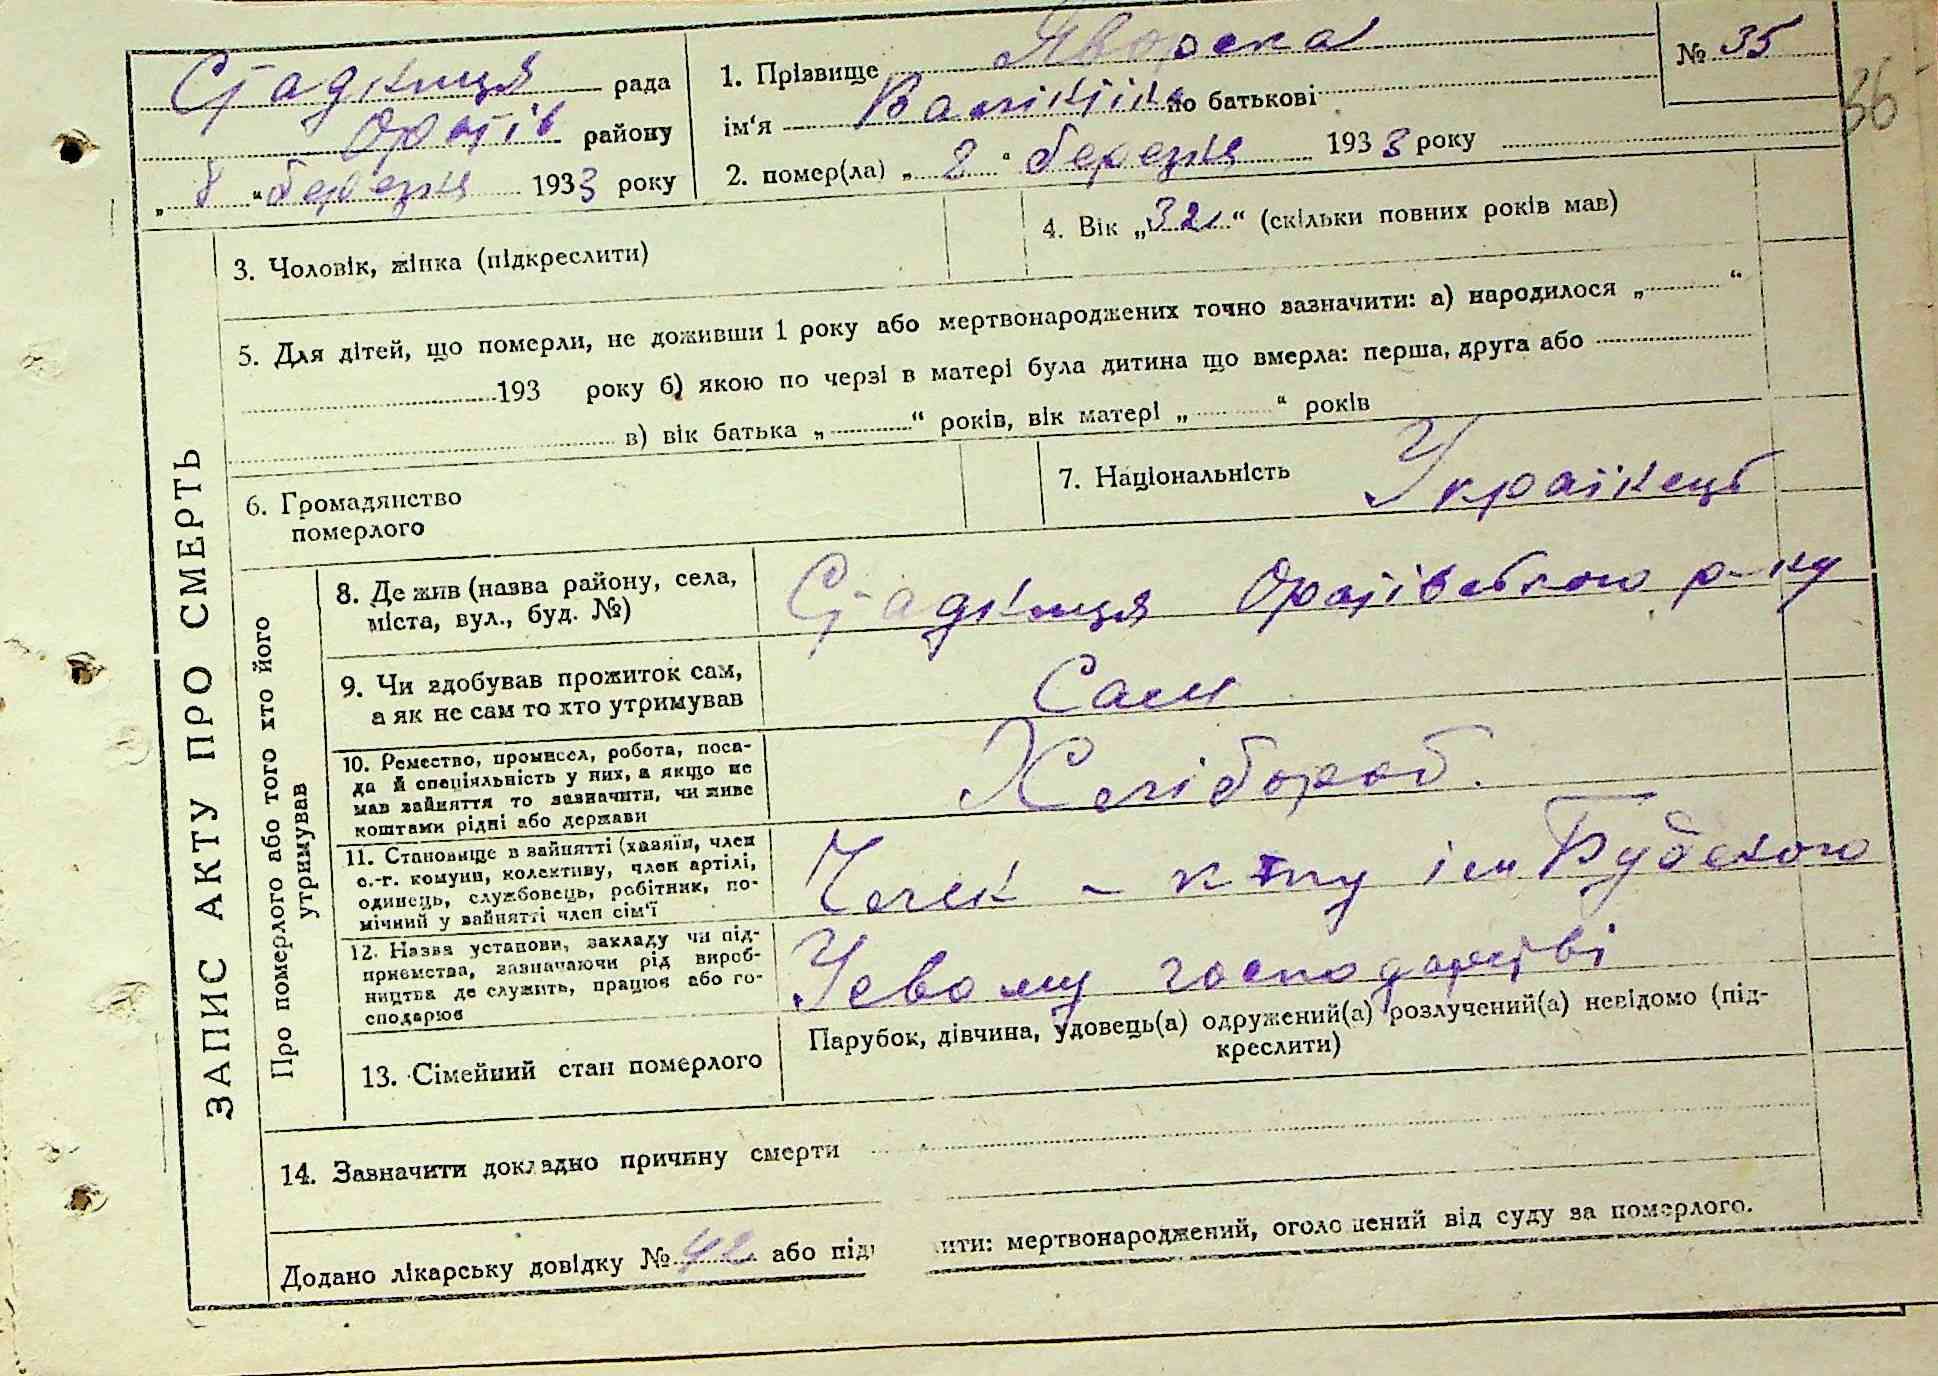 Стадниця рада
Оратів району
„ 8 “ березня 1933 року
1. Прізвище Яворска
ім'я по батькові
2. помер(ла) „ 2 “ березня 1933 року
№ 35
36
ЗАПИС АКТУ ПРО СМЕРТЬ
3. Чоловік, жінка (підкреслити)
4. Вік „32“ (скільки повних років мав)
5. Для дітей, що померли, не доживши 1 року або мертвонароджених точно зазначити: а) народилося „ “
193 року б) якою по черзі в матері була дитина що вмерла: перша, друга або
в) вік батька „ “ років, вік матері „ “ років
6. Громадянство
померлого
7. Національність Українець
Про померлого або того хто його
утримував
8. Де жив (назва району, села,
міста, вул., буд. №)
Стадниця Оратівського р-ну
9. Чи здобував прожиток сам,
а як не сам то хто утримував
Сам
10. Ремество, промисел, робота, поса-
да й спеціяльність у них, а якщо не
мав зайняття то зазначити, чи живе
коштами рідні або держави
Хлібороб.
11. Становище в зайнятті (хазяїн, член
с.-г. комуни, колективу, член артілі,
одинець, службовець, робітник, по-
мічний у зайнятті член сім'ї
Член - к-пу ім
12. Назва установи, закладу чи під-
приємства, зазначаючи рід вироб-
ництва де служить, працює або го-
сподарює
Усвому господарстві
13. Сімейний стан померлого
Парубок, дівчина, удовець(а) одружений(а) розлучений(а) невідомо (під-
креслити)
14. Зазначити докладно причину смерти
Додано лікарську довідку № 42 або під ити: мертвонароджений, оголо ений від суду за померлого.